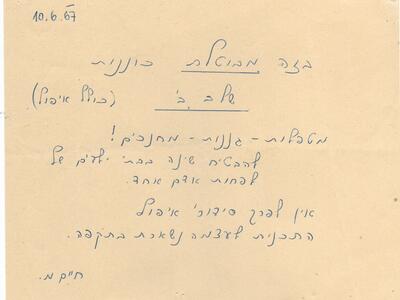 10.6.67
בזה מבוטלת כוננות
שלב ב' (כולל איפול)
מטפלות - גננות - מחנכים!
להבטיח שינה בבתי ילדים של
לפחות אדם אחד.
אין לפרק סידורי איפול
התכנית לעצמה נשארת בתקפה.
חיים מ.